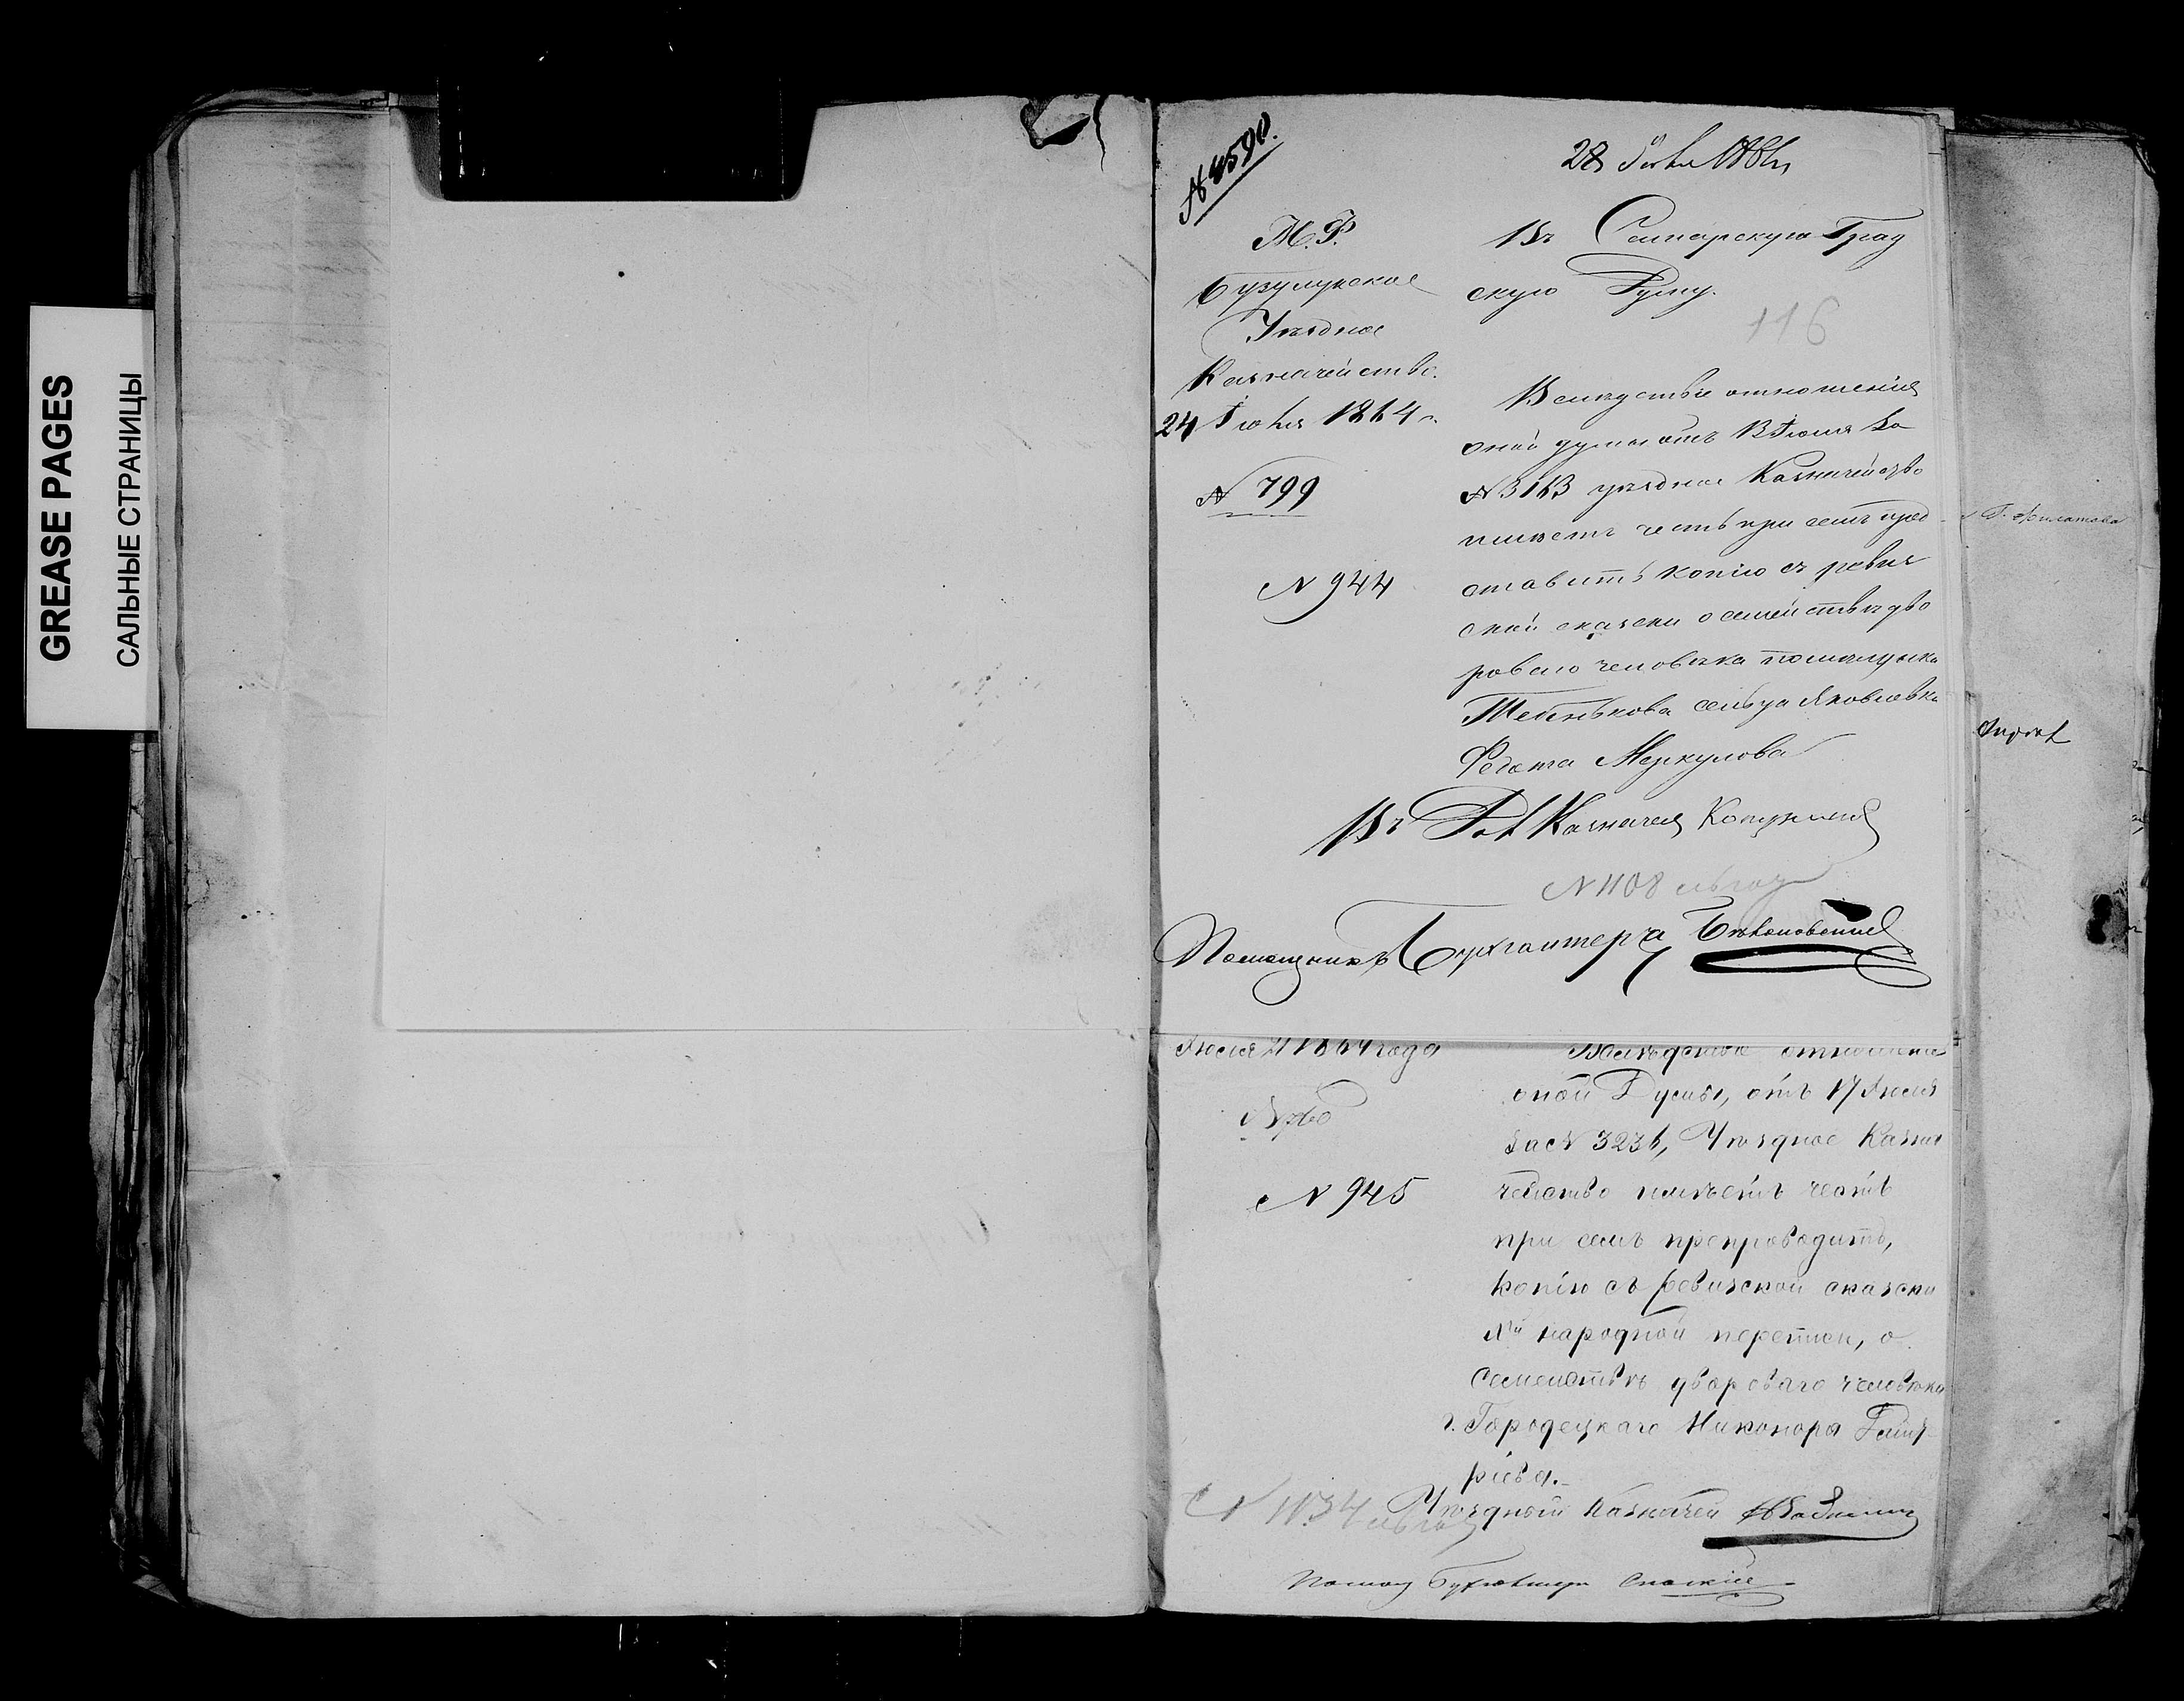 GREASE PAGES
САЛЬНЫЕ СТРАНИЦЫ
№ 4590.
28 Іюля 1864
М. Ф.
Бузулукское
Уѣздное
Казначейство.
24 Іюля 1864 г.
№ 799
№ 944
Въ Самарскую Град
скую Думу.
116
Вслѣдствіе отношенія
оной думы отъ 13 Іюля за
№ 3163 уѣздное Казначейство
имѣетъ честь при семъ пред
ставить копію съ ревиз
ской сказски о семействѣ дво
роваго человѣка помѣщика
сельца Яковлевки
Федота Меркулова
Казначея
№ 1108
Помощникъ Бухгалтера
Іюля 21 1864 года
№ 945
Вслѣдствіе отношенія
оной Думы, отъ 17 Іюля
за № 3236, Уѣздное Казна
чейство имѣетъ честь
при семъ препроводить,
копію съ ревизской сказски
Хй народной переписи, о
семействѣ двороваго человѣка
г. Городецкаго Никонора Дмит
ріева.
№ 1134
Уѣздный Казначей
Помощ Бухгалтера Спаскій